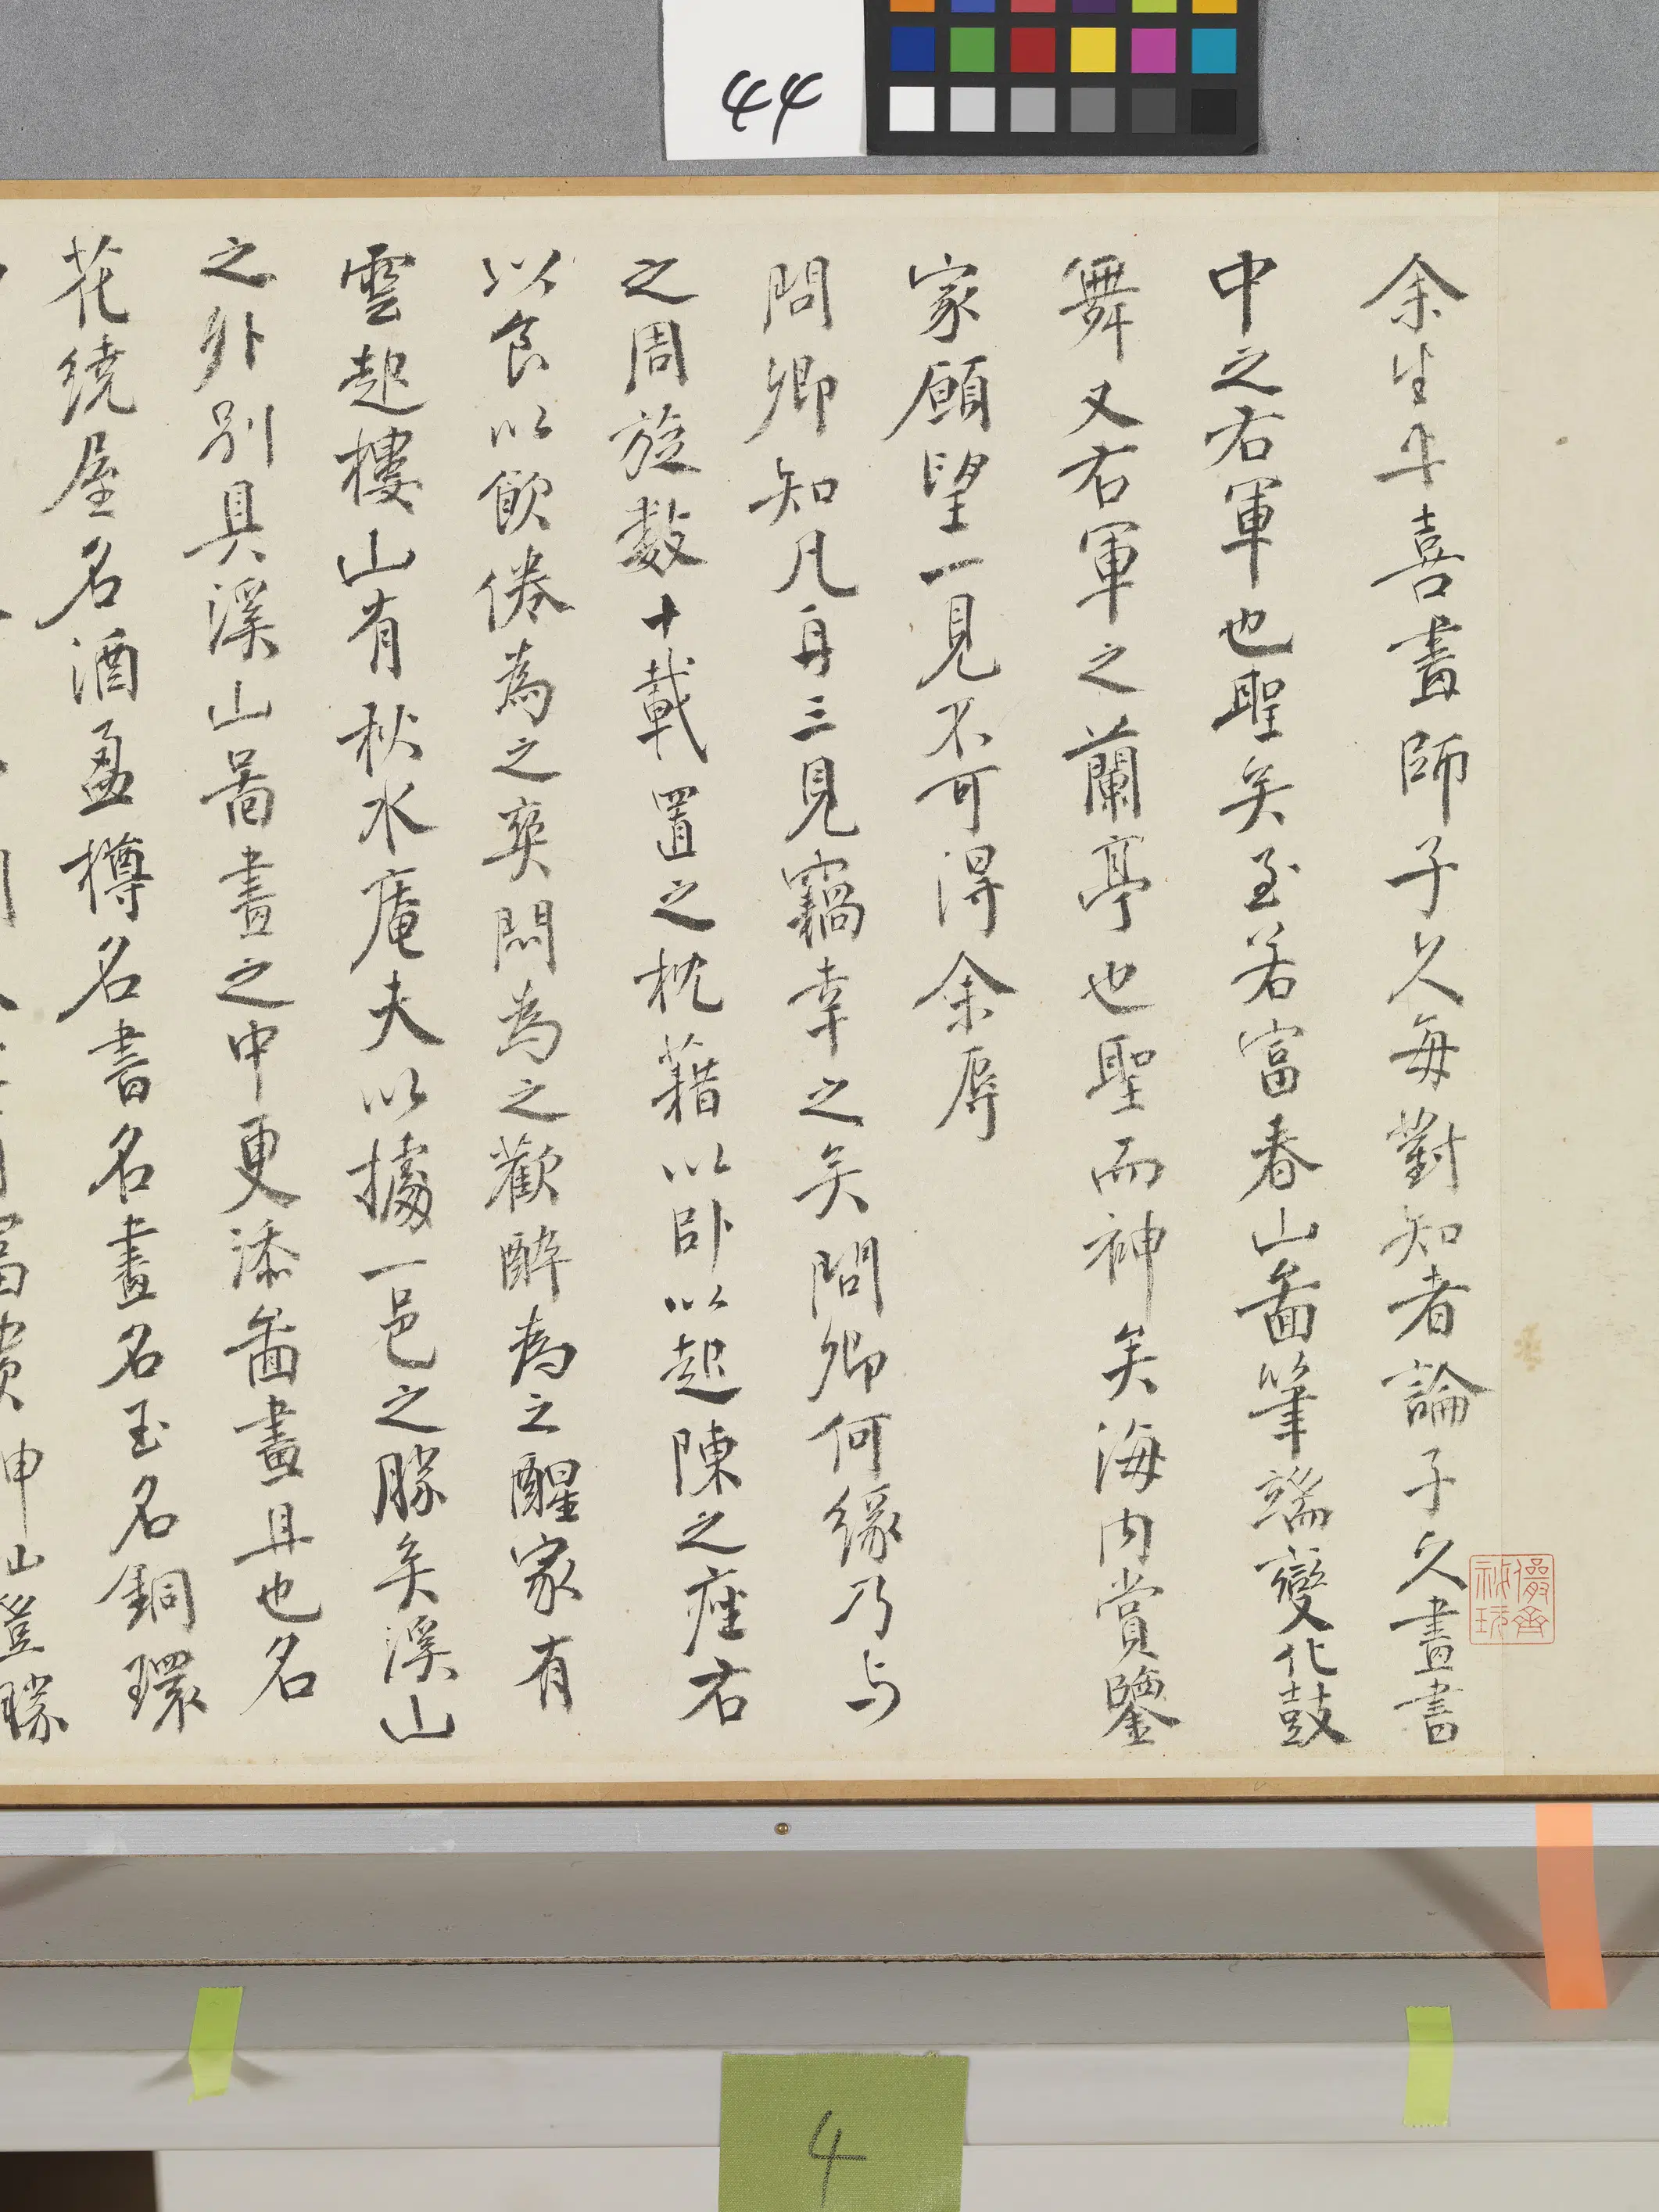 44
余生平喜畫師子久每對知者論子久畫書
中之右軍也聖矣至若富春山啚筆端變化鼓
舞又右軍之蘭亭也聖而神矣海內賞鑒
家願望一見不可得余辱
問卿知凡再三見竊幸之矣問卿何緣乃与
之周旋数十載置之枕藉以卧以起陳之座右
以食以飲倦為之爽悶為之歡醉為之醒家有
雲起樓山有秋水庵夫以據一邑之勝矣溪山
之外别具溪山啚畫之中更添啚畫且也名
花繞屋名酒盈樽名書名畫名玉名銅環
富春山豈勝
4